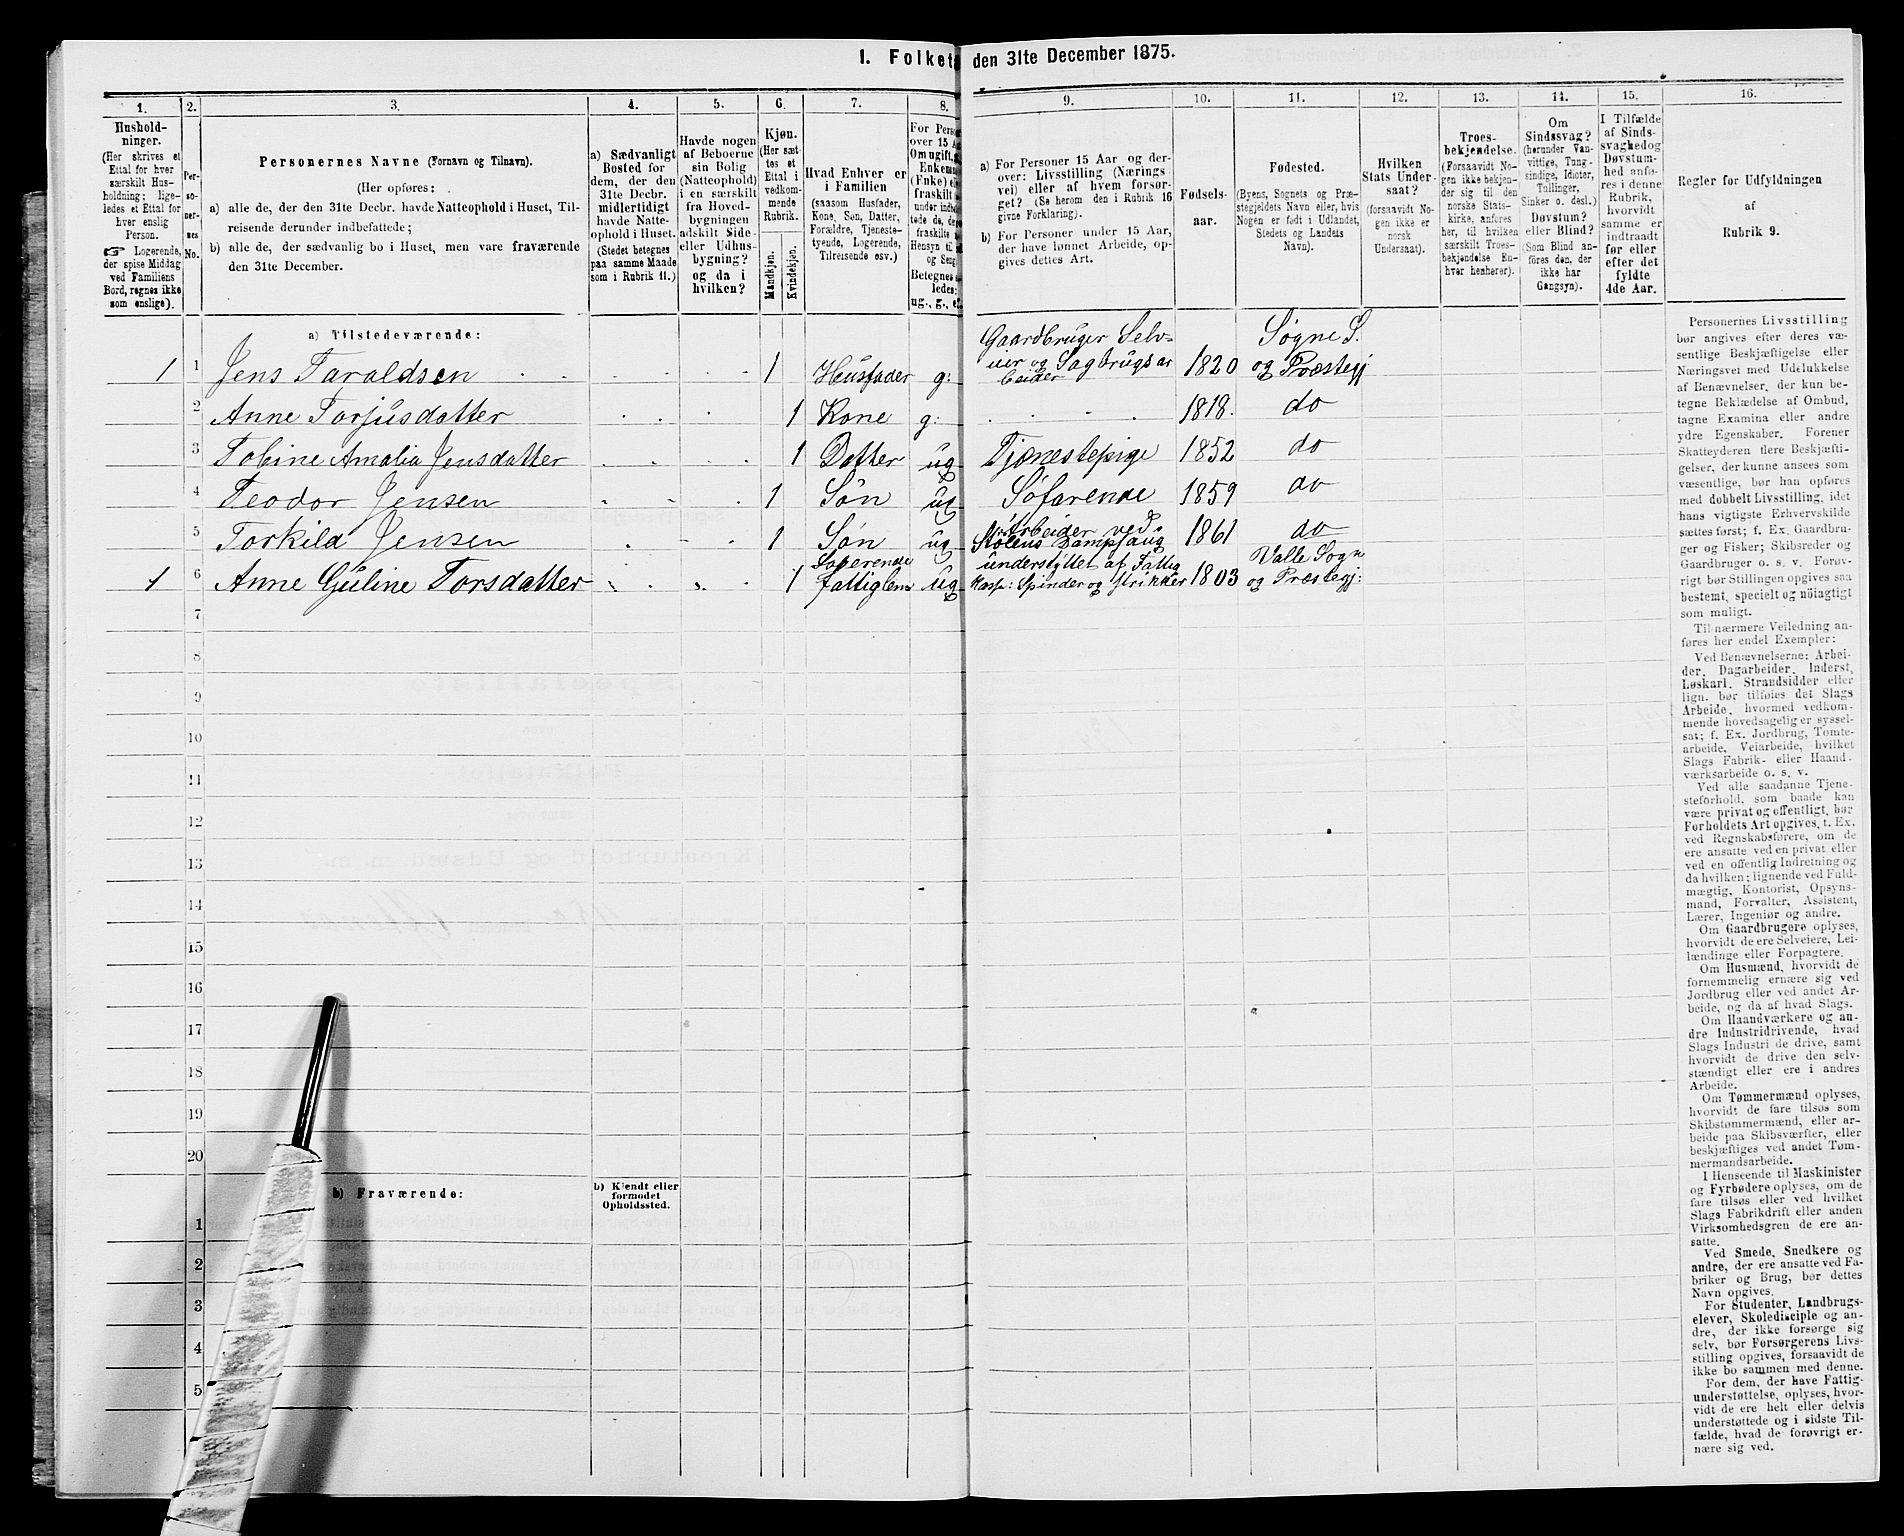 1. Folket den 31te December 1875.
1. 2. 3. 4. 5. 6. 7. 8. 9. 10. 11. 12. 13. 14. 15. 16.
Hushold-
ninger.
(Her skrives et
Ettal for hver
særskilt Hus-
holdning; lige-
ledes et Ettal for
hver enslig
Person.
☞ Logerende,
der spise Middag
ved Familiens
Bord, regnes ikke
som enslige).
Per-
so-
ner-
nes
No.
Personernes Navne (Fornavn og Tilnavn).
(Her opføres:
a) alle de, der den 31te Decbr. havde Natteophold i Huset, Til-
reisende derunder indbefattede;
b) alle de, der sædvanlig bo i Huset, men vare fraværende
den 31te December.
a) Sædvanligt
Bosted for
dem, der den
31te Decbr.
midlertidigt
havde Natte-
ophold i Huset.
(Stedet betegnes
paa samme Maade
som i Rubrik 11.)
Havde nogen
af Beboerne
sin Bolig
(Natteophold)
i en særskilt
fra Hoved-
bygningen
adskilt Side-
eller Udhus-
bygning?
og da i
hvilken?
Kjøn.
(Her sæt-
tes et
Ettal i
vedkom-
mende
Rubrik.
Mandkjøn.
Kvindekjøn.
Hvad Enhver er
i Familien
(saasom Husfader,
Kone, Søn, Datter,
Forældre, Tjeneste-
tyende, Logerende,
Tilreisende osv.)
For Perso
over 15 A
Om ugift, g
Enkem
(Enke) el
fraskilt
under indb
tede da,
fraskilte
Hensyn til
og Seng
Betegnes s
ledes:
ug., g., e
a) For Personer 15 Aar og der-
over: Livsstilling (Nærings-
vei) eller af hvem forsør-
get? (Se herom den i Rubrik 16
givne Forklaring).
b) For Personer under 15 Aar,
der have lønnet Arbeide, op-
gives dettes Art.
Fødsels-
aar.
Fødested.
(Byens, Sognets og Præ-
stegjeldets Navn eller, hvis
Nogen er født i Udlandet,
Stedets og Landets
Navn).
Hvilken
Stats Under-
saat?
(forsaavidt No-
gen ikke er
norsk
Undersaat).
Troes-
bekjendelse.
(Forsaavidt No-
gen ikke bekjen-
der sig til den
norske Stats-
kirke, anføres
her, til hvilken
særskilt Troes-
bekjendelse En-
hver henhører).
Om
Sindssvag?
(herunder Van-
vittige, Tung-
sindige, Idioter,
Tullinger,
Sinker o. desl.)
Døvstum?
eller Blind?
(Som Blind an-
føres den, der
ikke har
Gangsyn).
I Tilfælde
af Sinds-
svaghed og
Døvstum-
hed anfø-
res i denne
Rubrik,
hvorvidt
samme er
indtraadt
før eller
efter det
fyldte
4de Aar.
Regler for Udfyldningen
af
Rubrik 9.
a) Tilstedeværende:
1 1 Jens Taraldsen 1 Husfader g: Gaardbruger Selv-
eier og Sagbrugsar
beider 1820 Søgne S.
og Præstegj
2 Anne Torjusdatter 1 Kone g: 1818. do
3 Tobine Amalia Jensdatter 1 Datter ug Tjenestepige 1852 do
4 Teodor Jensen 1 Søn ug Søfarende 1859 do
5 Torkild Jensen 1 Søn ug Arbeider ved
Stølens Dampsaug 1861 do
1 6 Anne Guline Torsdatter 1 Logerende
Fattiglem ug understyttet af Fattig
Kasse: Spinder og strikker 1803 Valle Sogn
og Præstegj:
7
8
9
10
11
12
13
14
15
16
17
18
19
20
b) Fraværende:
b) Kjendt eller
formodet
Opholdssted.
1
2
3
4
5
Personernes Livsstilling
bør angives efter deres væ-
sentlige Beskjæftigelse eller
Næringsvei med Udelukkelse
af Benævnelser, der kun be-
tegne Beklædelse af Ombud,
tagne Examina eller andre
ydre Egenskaber. Forener
Skatteyderen flere Beskjæfti-
gelser, der kunne ansees som
væsentlige, bør han opføres
med dobbelt Livsstilling, idet
hans vigtigste Erhvervskilde
sættes først; f. Ex. Gaardbru-
ger og Fisker; Skibsreder og
Gaardbruger o. s. v. Forøv-
rigt bør Stillingen opgives saa
bestemt, specielt og nöiagtigt
som muligt.
Til nærmere Veiledning an-
føres her endel Exempler:
Ved Benævnelserne: Arbei-
der, Dagarbeider, Inderst,
Løskarl, Strandsidder eller
lign. bør tilføies det Slags
Arbeide, hvormed vedkom-
mende hovedsagelig er syssel-
sat; f. Ex. Jordbrug, Tomte-
arbeide, Veiarbeide, hvilket
Slags Fabrik- eller Haand-
værksarbeide o. s. v.
Ved alle saadanne Tjene-
steforhold, som baade kan
være privat og offentligt, bør
Forholdets Art opgives, t. Ex.
ved Regnskabsførere, om de
ere ansatte ved en privat eller
ved en offentlig Indretning og
da hvilken; lignende ved Fuld-
mægtig, Kontorist, Opsyns-
mand, Forvalter, Assistent,
Lærer, Ingeniør og andre.
Om Gaardbrugere oplyses,
hvorvidt de ere Selveiere, Lei-
lændinge eller Forpagtere.
Om Husmænd, hvorvidt de
fornemmelig ernære sig ved
Jordbrug eller ved andet Ar-
beide, og da af hvad Slags.
Om Haandværkere og an-
dre Industridrivende, hvad
Slags Industri de drive, samt
hvorvidt de drive den selv-
stændigt eller ere i andres
Arbeide.
Om Tømmermænd oplyses,
hvorvidt de fare tilsøs som
Skibstømmermænd, eller ar-
beide paa Skibsværfter, eller
beskjæftiges ved andet Tøm-
mermandsarbeide.
I Henseende til Maskinister
og Fyrbødere oplyses, om de
fare tilsøs eller ved hvilket
Slags Fabrikdrift eller anden
Virksomhedsgren de ere an-
satte.
Ved Smede, Snedkere og
andre, der ere ansatte ved Fa-
briker og Brug, bør dettes
Navn opgives.
For Studenter, Landbrugs-
elever, Skoledisciple og an-
dre, der ikke forsørge sig
selv, bør Forsørgerens Livs-
stilling opgives, forsaavidt de
ikke bo sammen med denne.
For dem, der have Fattig-
understøttelse, oplyses, hvor-
vidt de ere helt eller delvis
understøttede og i sidste Til-
fælde, hvad de forøvrigt er-
nære sig ved.